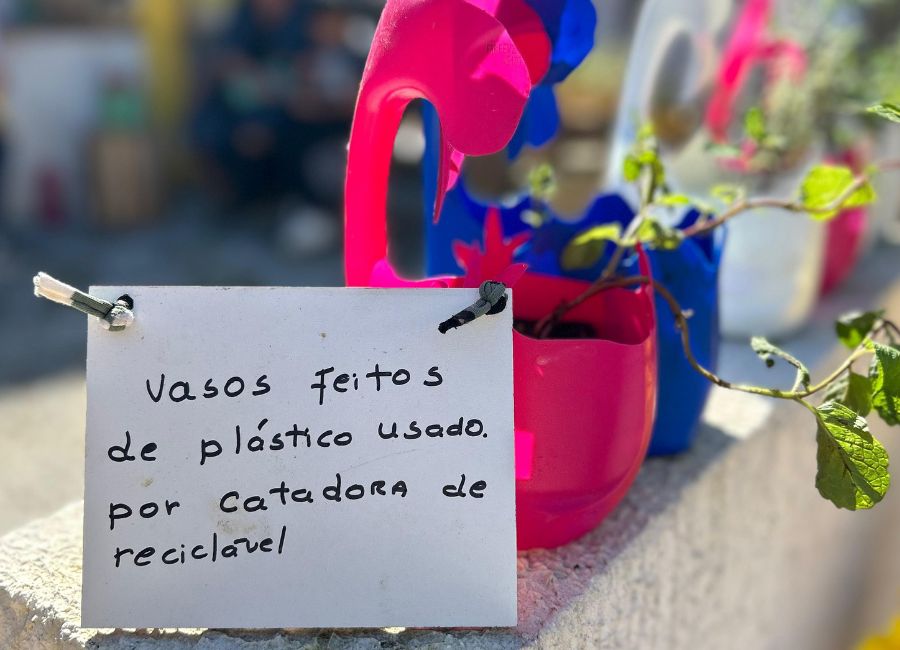 vasos feitos
de plástico usado.
por catadora de
reciclável